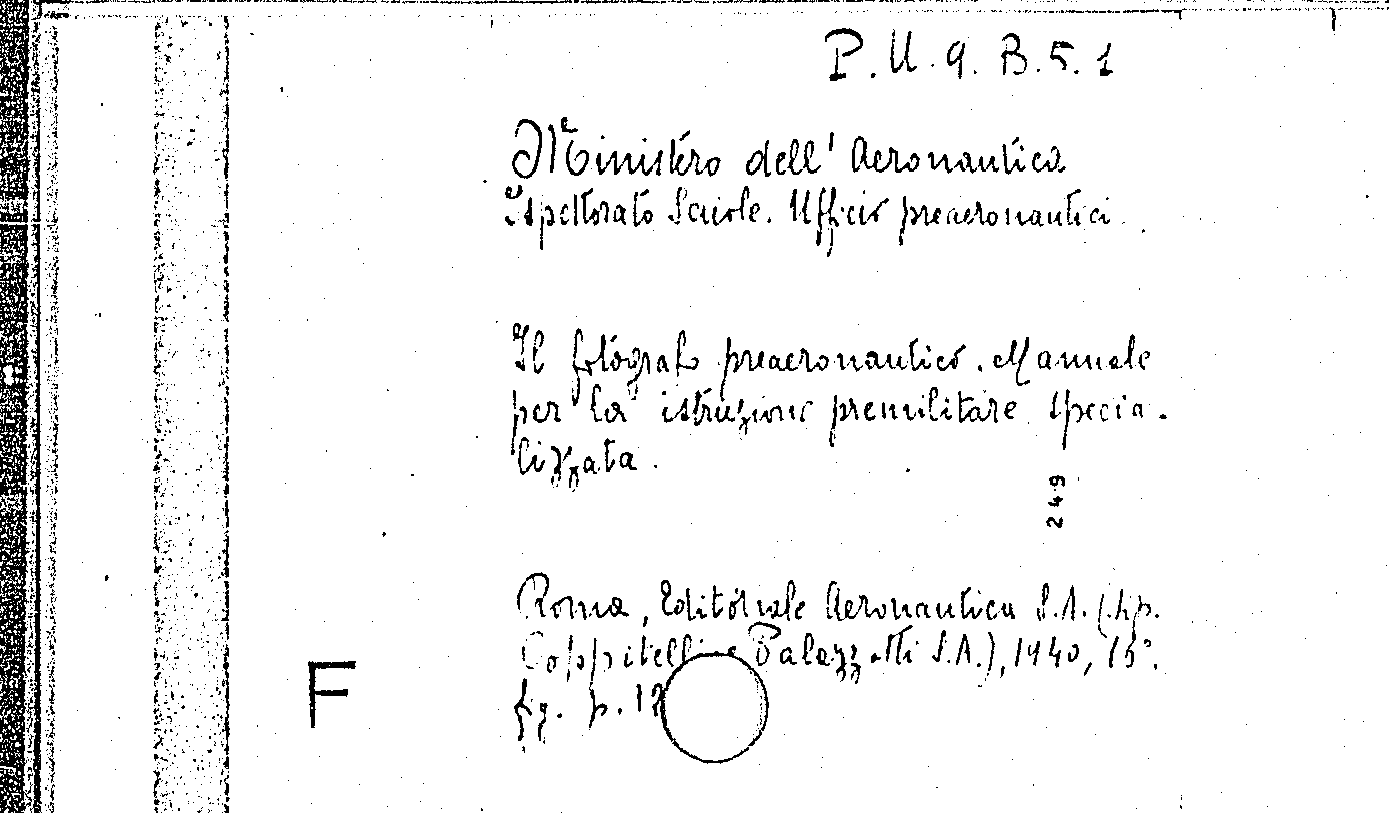 P.U.9.B.5.1
Ministero dell'Aeronautica
Ispettorato Scuole. Ufficio preaeronautici
Il fotografo preaeronautico. Manuale
per la istruzione premilitare specia-
lizzata.
249
Roma, Editoriale Aeronautica S.A. (tip.
Coppitelli e Palazzotti S.A.), 1940, 15°.
F
fig. p.